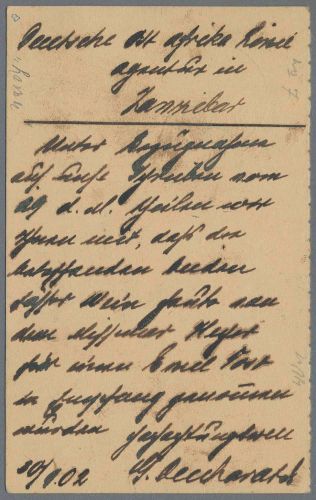 Deutsche Ost Afrika Linie
agentur in
Zanzibar
Unter Bezugnahme
auf Ihr Schreiben vom
29 d. M. theilen wir
Ihnen mit, daß die
betreffenden beiden
Fässer Wein heute von
dem Missionar
für einen Emil
in Empfang genommen
wurden hochachtungsvoll
02